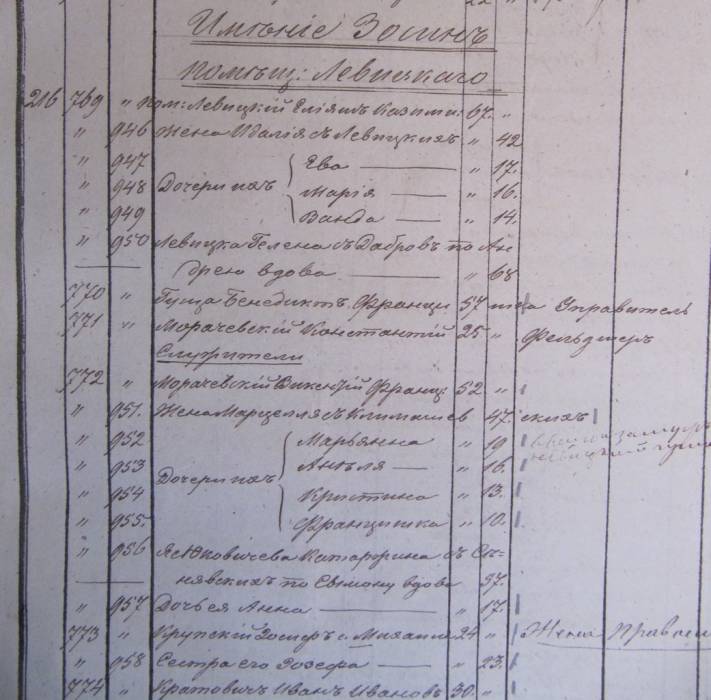 Имѣніе Зосинъ
помѣщ: Левицкаго
216 769 " пом: Левицкій Казими: 67. "
" 946 Жена Идалія съ Левицкихъ " 42
" 947 Ева — " 17.
" 948 Дочери ихъ Марія — " 16.
" 949 Ванда — " 14.
" 950 Левицка Гелена съ Домбровъ по Ан
— дрею вдова — " 68
770 " Гуща Бенедиктъ Франци 57 Управитель
771 " Морачевскій Константій 25 " Фельдшеръ
Служители
772 " Морачевскій Викентій Франц: 52 "
" 951. Жена Марцелля съ Климашев 47. скихъ
" 952 Марьянна " 19
" 953 Анѣля — " 16.
Дочери ихъ
" 954 Кристина " 13.
" 955. Францишка " 10.
" 956 Катаржина съ
— нявскихъ по Сымону вдова 37.
" 957 Дочь ея Анна — " 17.
773 " Крупскій Іосифъ с. Михаила 24 " Жена
" 958 Сестра его Розефа — " 23.
774 " Кратовичъ Иванъ Ивановъ 30. "